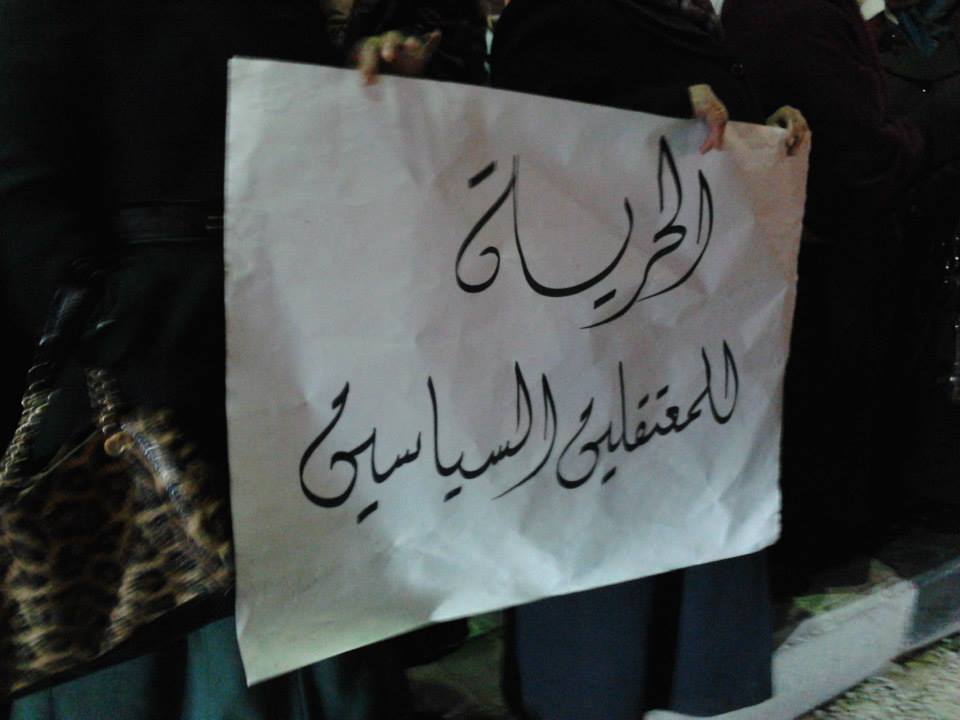 الحرية
للمعتقلين السياسين